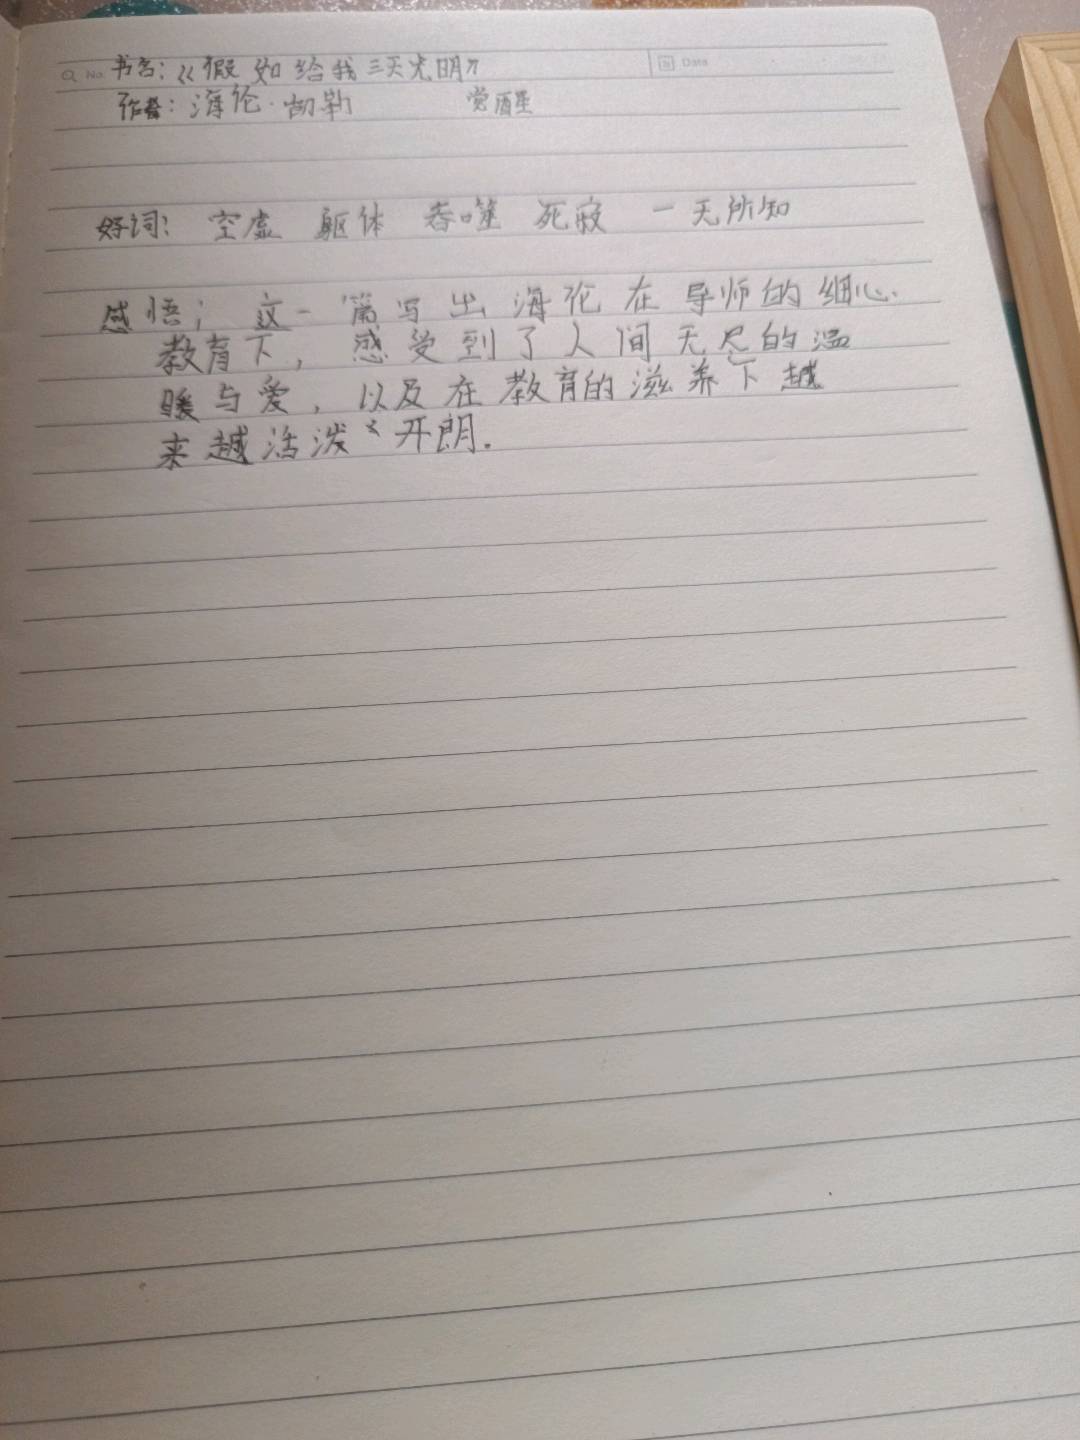 No.
Date
书名:《假如给我三天光明》
作者:海伦·凯勒 觉醒
好词: 空虚 躯体 吞噬 死寂 一无所知
感悟: 这一篇写出海伦在导师的细心
教育下, 感受到了人间无尽的温
暖与爱, 以及在教育的滋养下越
来越活泼、开朗.